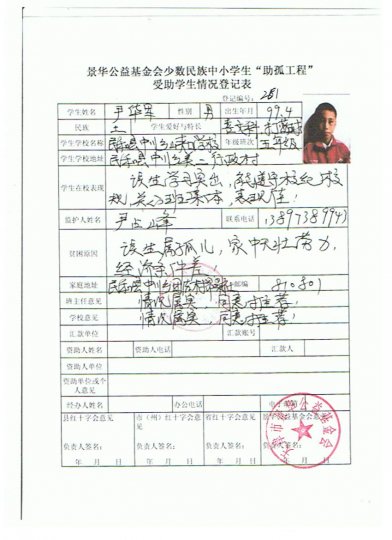 景华公益基金会少数民族中小学生“助孤工程”
受助学生情况登记表
登记编号： 281
学生姓名 尹华军 性别 男 出生年月 99.4
民族 土 学生爱好与特长
学生学校名称 年级班次 五年级
学生学校地址 民和县中川乡美二行政村
学生在校表现 该生学习突出，能遵守校纪校
规，关心班集体，表现佳！
监护人姓名 联系电话 13897389943
贫困原因 该生属孤儿，家中无壮劳力，
经济条件差
家庭地址 邮编 810801
班主任意见 情况属实，同意推荐！
学校意见 情况属实，同意推荐！
汇款单位 汇款账号
资助人姓名 资助人电话 汇款人
资助人单位
资助单位或个
人意见
经办人姓名 办公电话 电子
县红十字会意见 市（州）红十字会意见 省红十字会意见 景华公益基金会意见
负责人签名： 负责人签名： 负责人签名： 负责人签名：
年 月 日 年 月 日 年 月 日 年 月 日